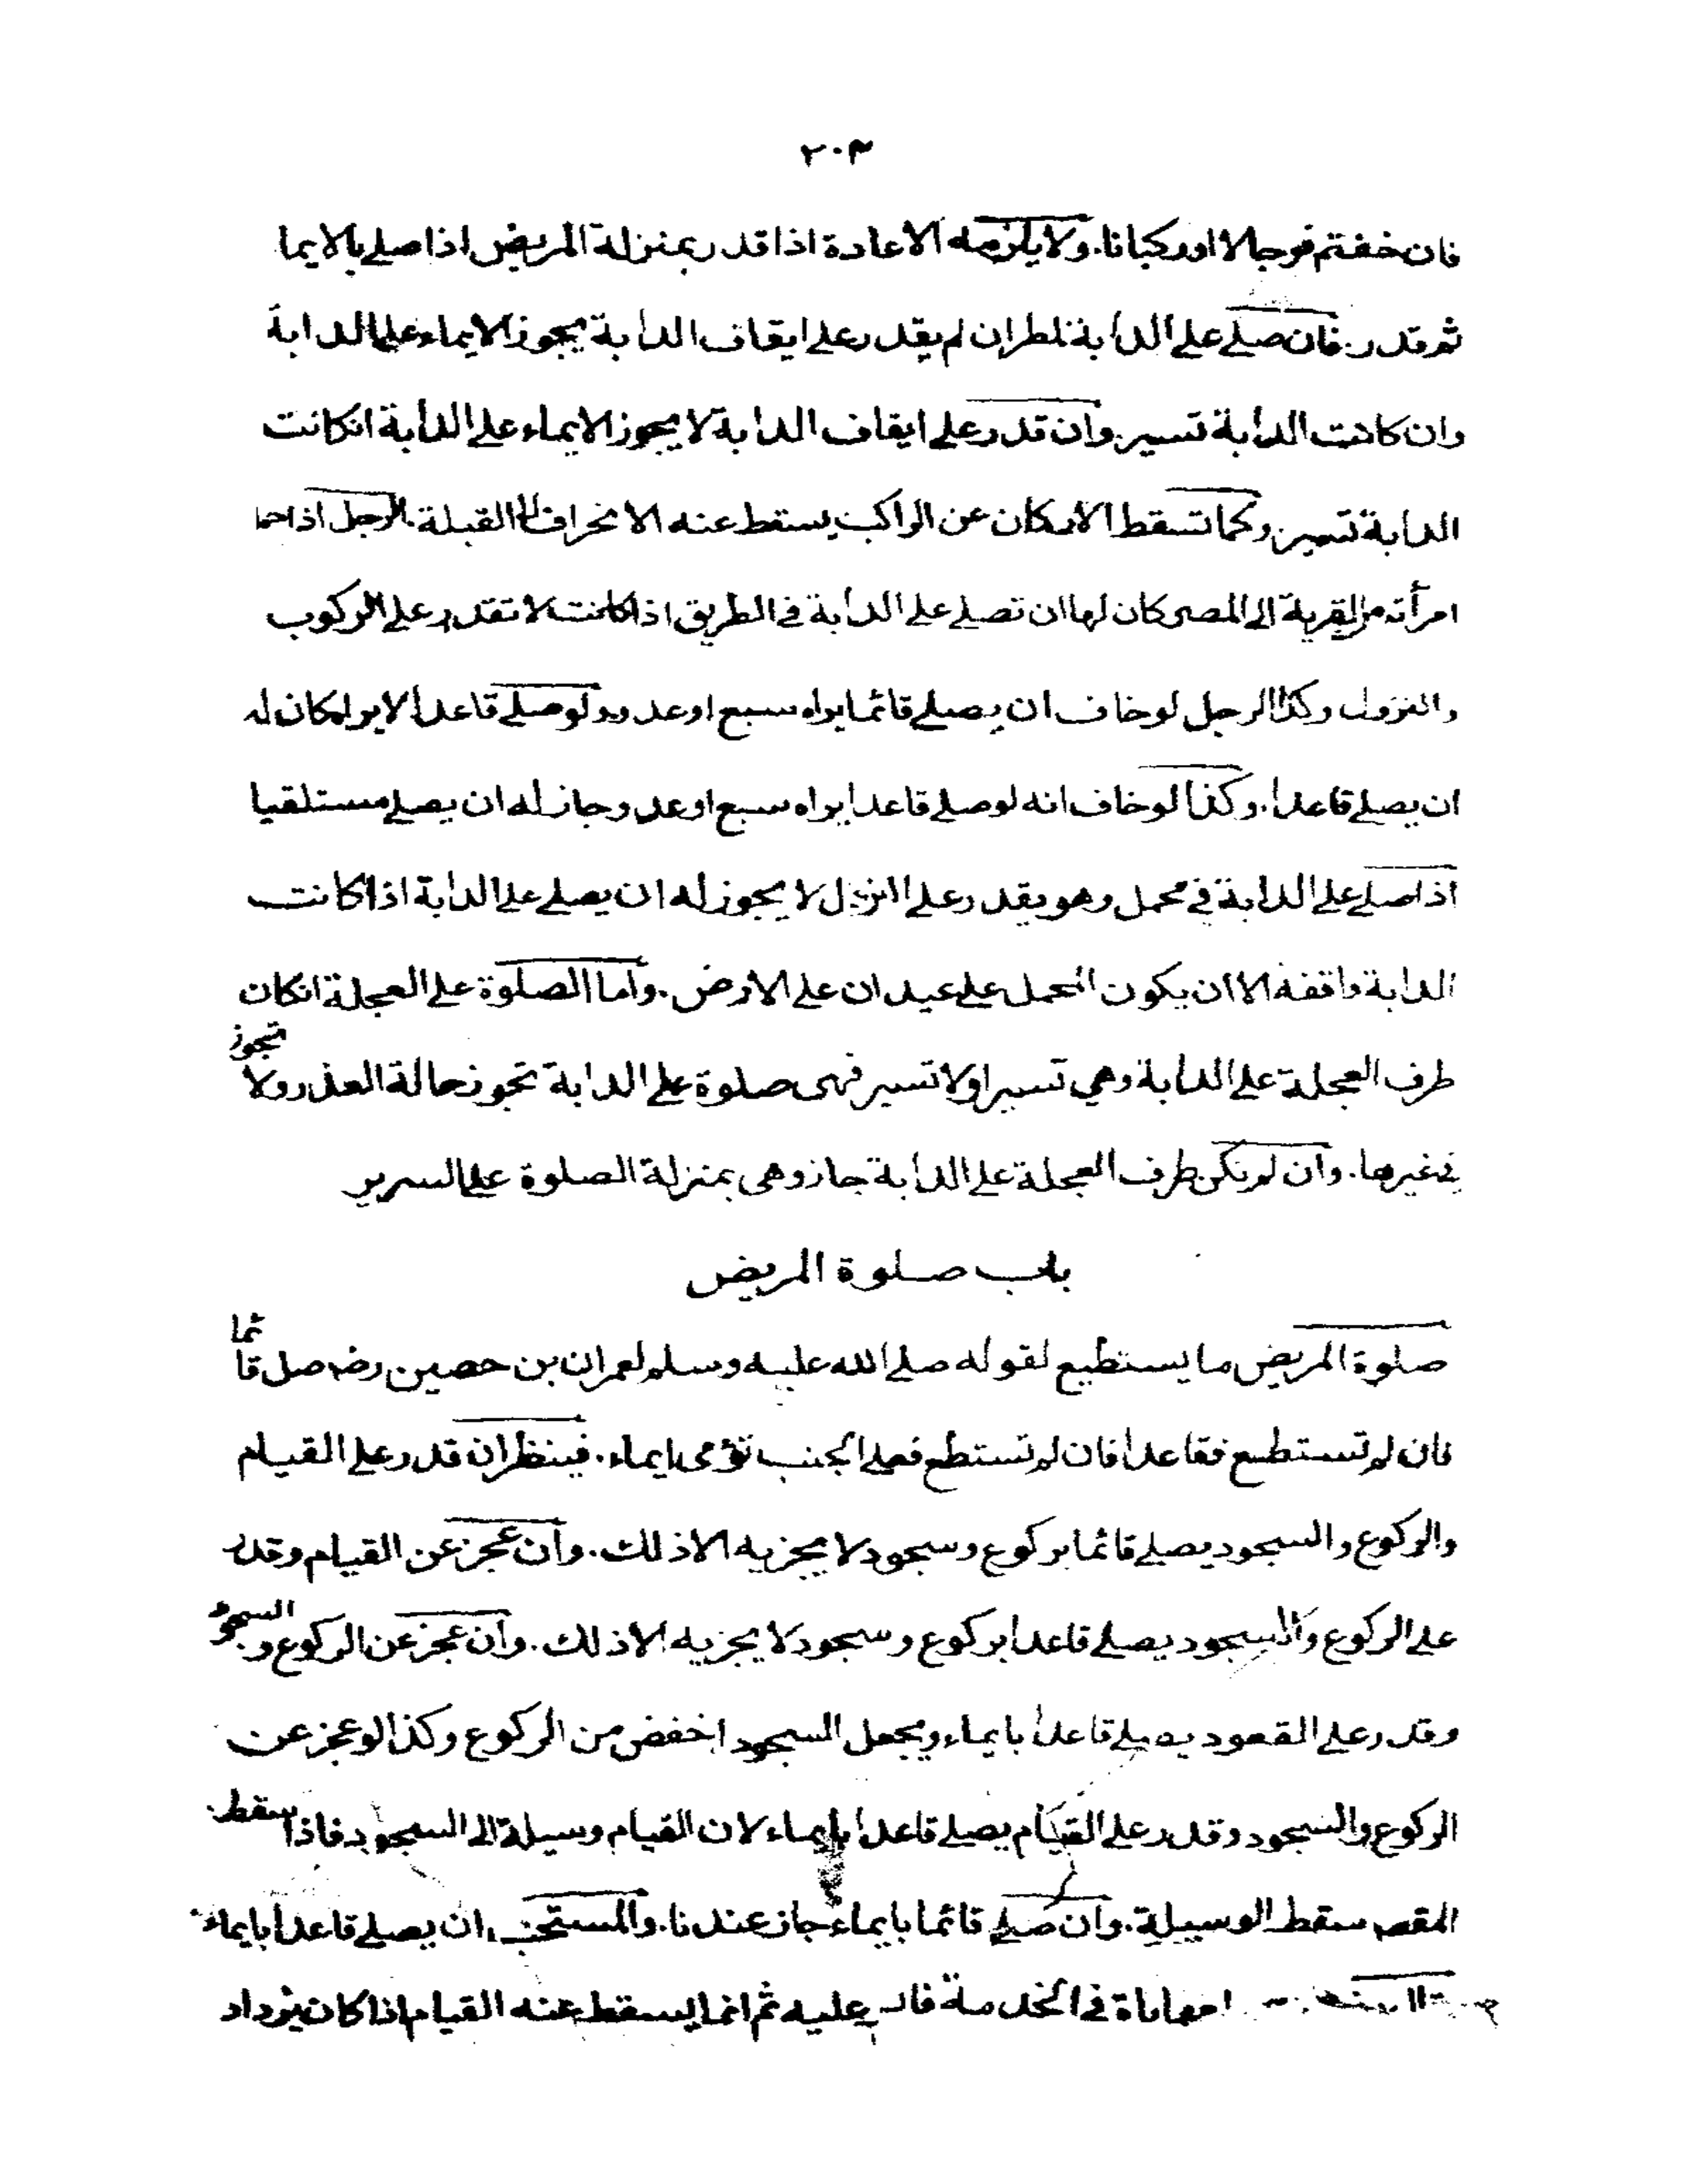 ٢٠٣
فان خفتم فرجالا اوركبانا. ولا يلزمه الاعادة اذا قدر بمنزلة المريض اذا صلے بالايما
ثم قدر. فان صلے علے الدابة لمطر ان لم يقدر علے ايقاف الدابة يجوز الايماء علے الدابة
وان كانت الدابة تسير. وان قدر علے ايقاف الدابة لا يجوز الايماء علے الدابة انكانت
الدابة تسير. وكما تسقط الاركان عن الراكب يسقط عنه الانحراف الے القبلة. الرجل اذا حما
امرأته من القرية الے المصر كان لها ان تصلے علے الدابة فے الطريق اذا كانت لا تقدر علے الركوب
والنزول وكذا الرجل لو خاف ان يصلے قائما يراه سبع او عدو ولو صلے قاعدا لا يراه كان له
ان يصلے قاعدا. وكذا لو خاف انه لو صلے قاعدا يراه سبع او عدو جاز له ان يصلے مستلقيا
اذا صلے علے الدابة فے محمل وهو يقدر علے النزول لا يجوز له ان يصلے علے الدابة اذا كانت
الدابة واقفة الا ان يكون المحمل علے عيدان علے الارض. واما الصلوة علے العجلة انكان
طرف العجلة علے الدابة وهي تسير او لا تسير فهى صلوة علے الدابة تجوز حالة العذر ولا تجوز
فے غيرها. وان لم يكن طرف العجلة علے الدابة جاز وهى بمنزلة الصلوة علے السرير
باب صلوة المريض
صلوة المريض ما يستطيع لقوله صلے الله عليه وسلم لعمران بن حصين رضہ صل قائما
فان لم تستطع فقاعدا فان لم تستطع فعلے الجنب تؤمى ايماء. فينظر ان قدر علے القيام
والركوع والسجود يصلے قائما بركوع وسجود لا يجزيه الا ذلك. وان عجز عن القيام وقدر
علے الركوع والسجود يصلے قاعدا بركوع وسجود لا يجزيه الا ذلك. وان عجز عن الركوع و السجود
وقدر علے القعود يصلے قاعدا بايماء ويجعل السجود اخفض من الركوع وكذا لو عجز عن
الركوع والسجود وقدر علے القيام يصلے قاعدا بايماء لان القيام وسيلة الے السجود فاذا سقط
المقصد سقط الوسيلة. وان صلے قائما بايماء جاز عندنا. والمستحب ان يصلے قاعدا بايماء
فے الخدمة عليه ثم انما يسقط عنه القيام اذا كان يزداد